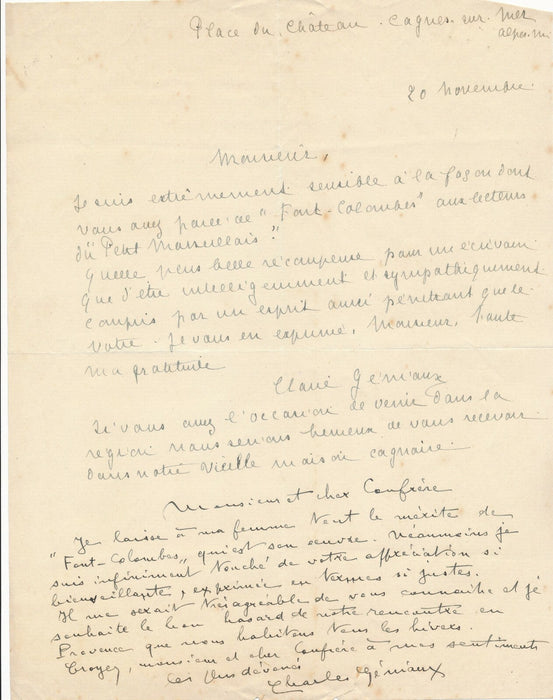 Place du Château. Cagnes-sur-Mer
Alpes-Mi
20 Novembre.
Monsieur,
Je suis extrêmement sensible à la façon dont
vous avez parlé de "Font-Colombes" aux lecteurs
du "Petit Marseillais".
Quelle plus belle récompense pour un écrivain
que d'être intelligemment et sympathiquement
compris par un esprit aussi pénétrant que le
votre. Je vous en exprime, Monsieur, toute
ma gratitude
Claire Géniaux
Si vous avez l'occasion de venir dans la
région nous serions heureux de vous recevoir
dans notre vieille maison cagnoise.
Monsieur et cher Confrère
Je laisse à ma femme tout le mérite de
"Font-Colombes" qui est son œuvre. Néanmoins je
suis infiniment touché de votre appréciation si
bienveillante, exprimée en termes si justes.
Il me serait très agréable de vous connaître et je
souhaite le bon hasard de notre rencontre en
Provence que nous habitons tous les hivers.
Croyez, monsieur et cher Confrère à mes sentiments
les plus dévoués
Charles Géniaux